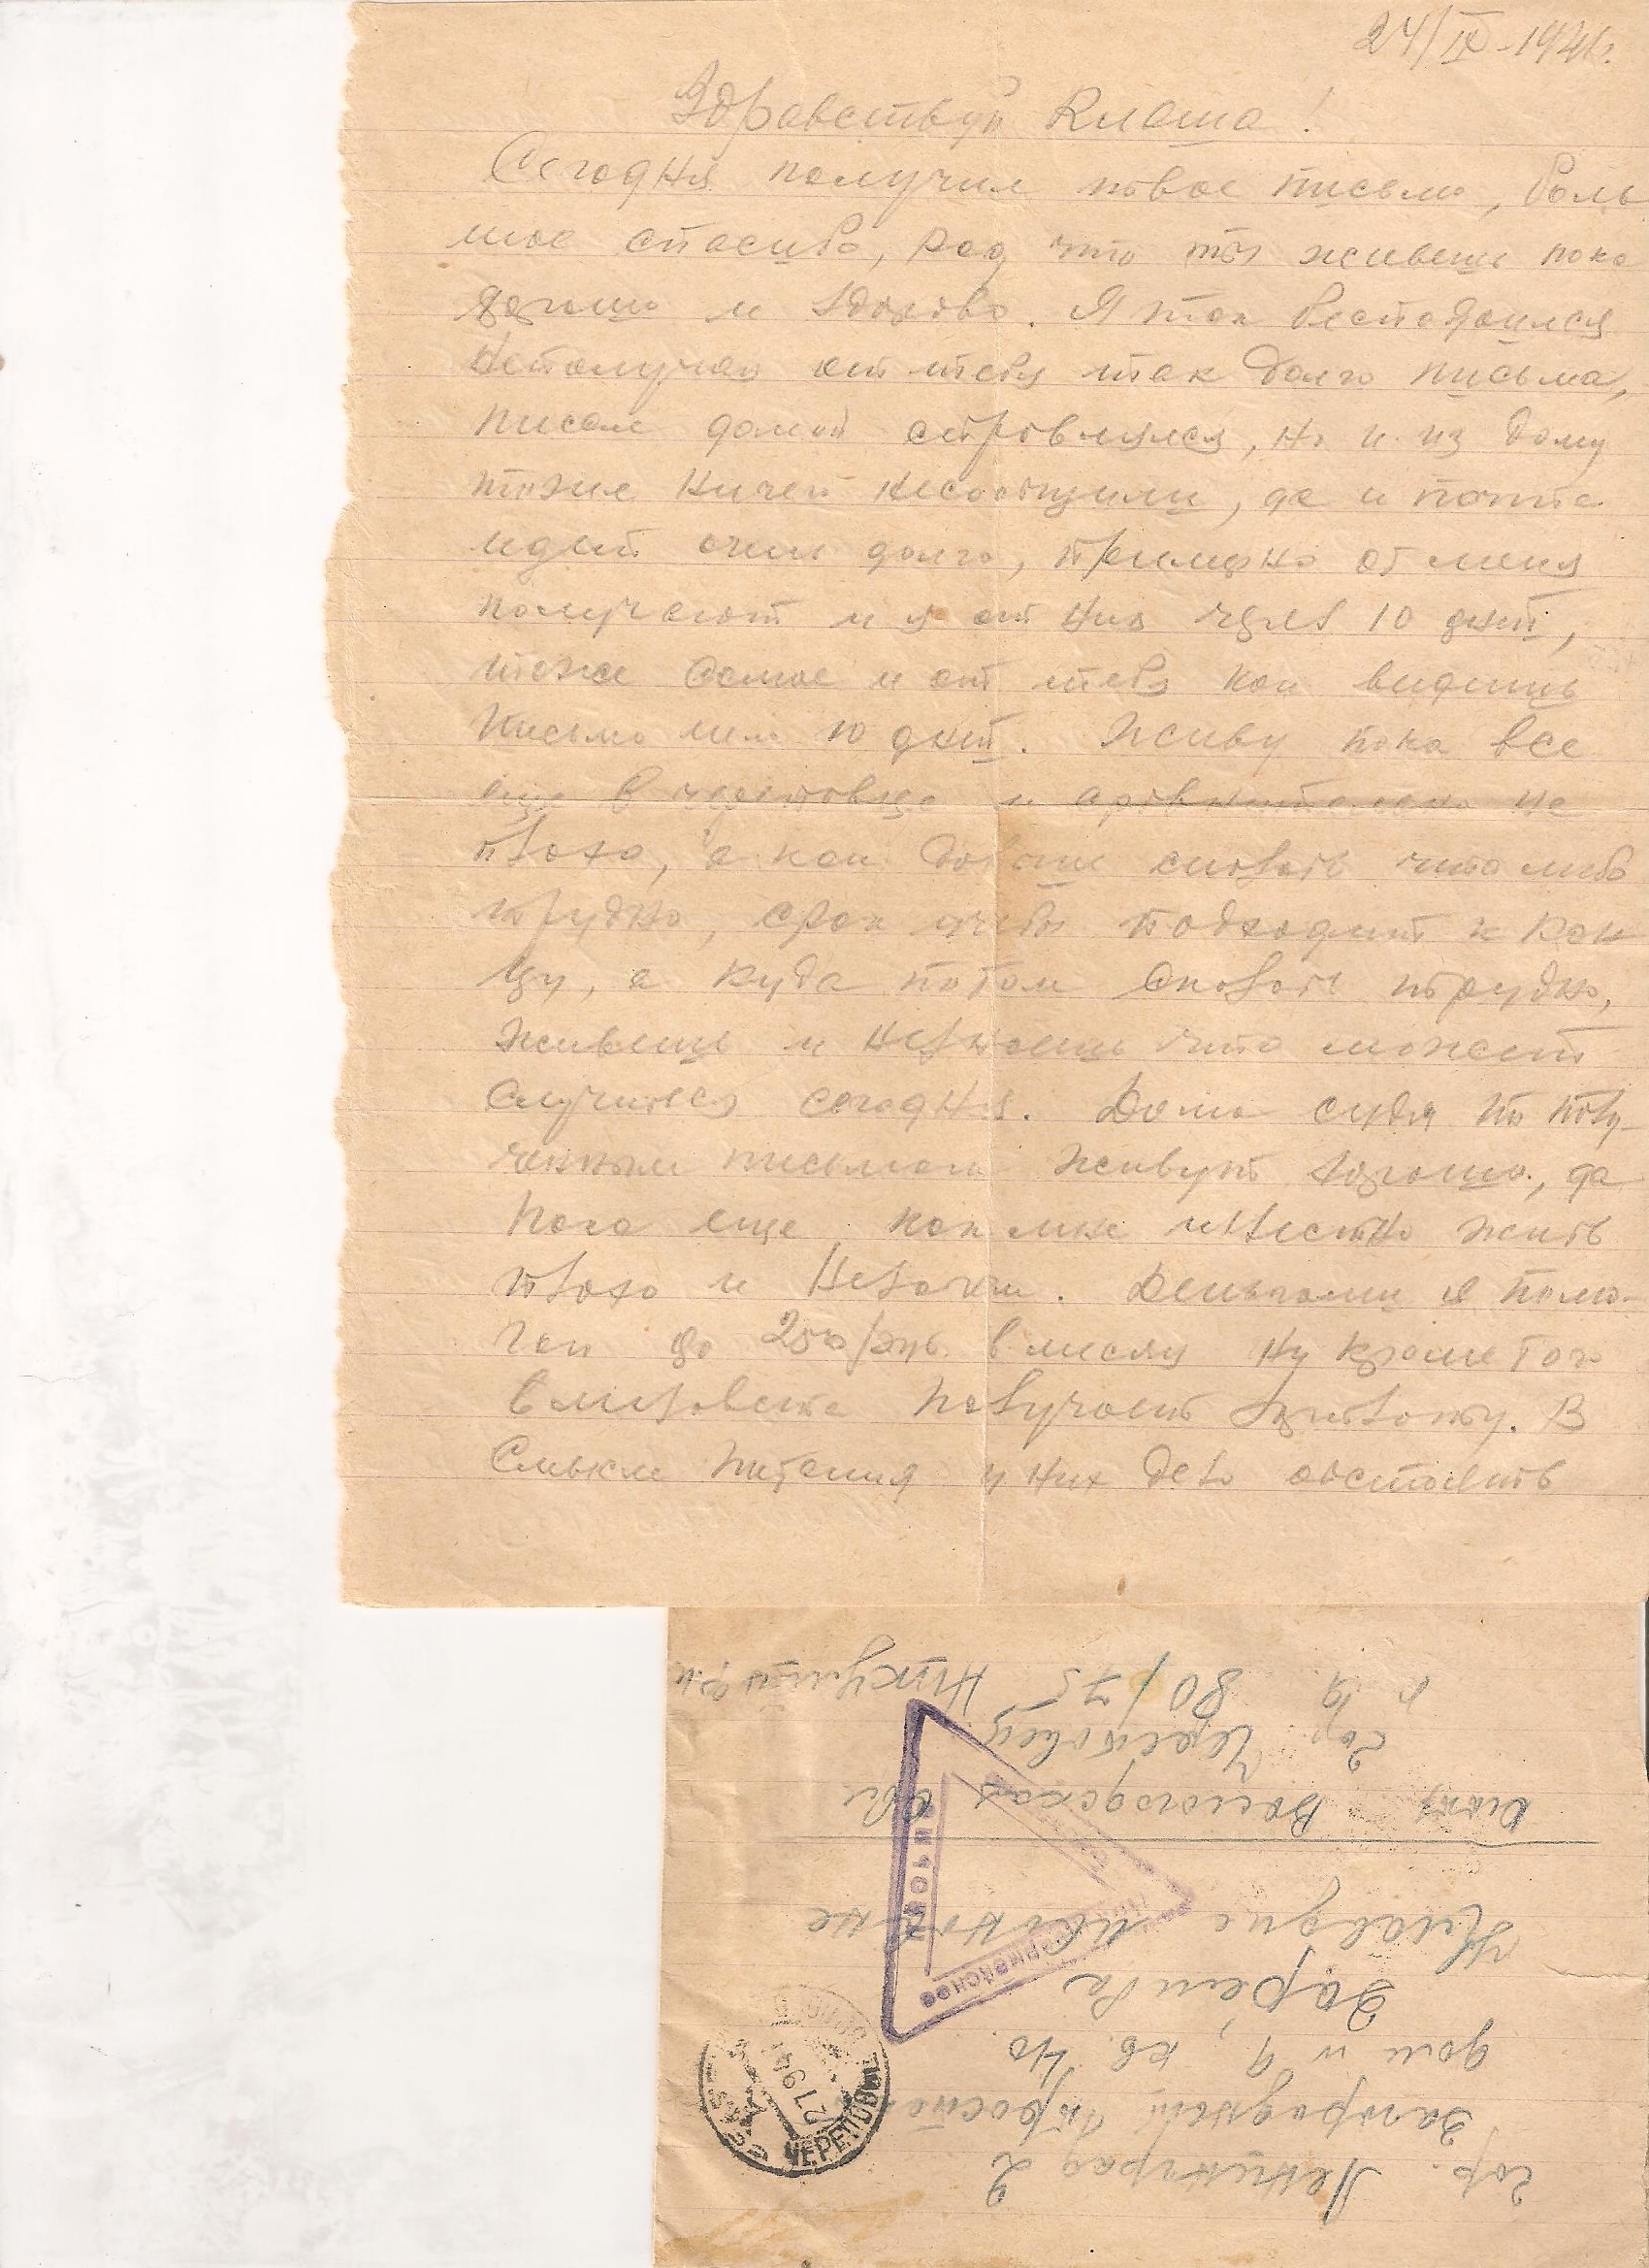 24/IX-1941г.
Здравствуй Клаша!
Сегодня получил твое письмо, боль
шое спасибо, рад что ты живешь пока
хорошо и здорово. Я так беспокоился
неполучая от тебя так долго письма,
писал домой справлялся, но и из дому
тоже ничего несообщили, да и почта
идет очень долго, примерно от меня
получают и я от них через 10 дней,
тоже самое и от тебя как видишь
письмо шло 10 дней. Живу пока все
еще в череповце и сравнительно не
плохо, а как дальше сказать что либо
трудно, срок учебы подходит к кон
цу, а куда потом сказать трудно,
живешь и незнаешь что может
случиться сегодня. Дома судя по полу-
ченным письмам живут хорошо, да
пока еще как мне известно жить
плохо и незачем. Деньгами я помо-
гаю до 250 руб. в месяц ну кроме того
Елизавета получает зарплату. В
смысле питания у них дело обстоить
гор. Ленинград 2
Загородный проспект
дом н 9, кв. 40.
Зарембо
Клавдие
Вологодская обл
гор. Череповец
п. я. 80/75 Никулин
КРАСНОАРМЕЙСКОЕ
ЧЕРЕПОВЕЦ
27 9 41